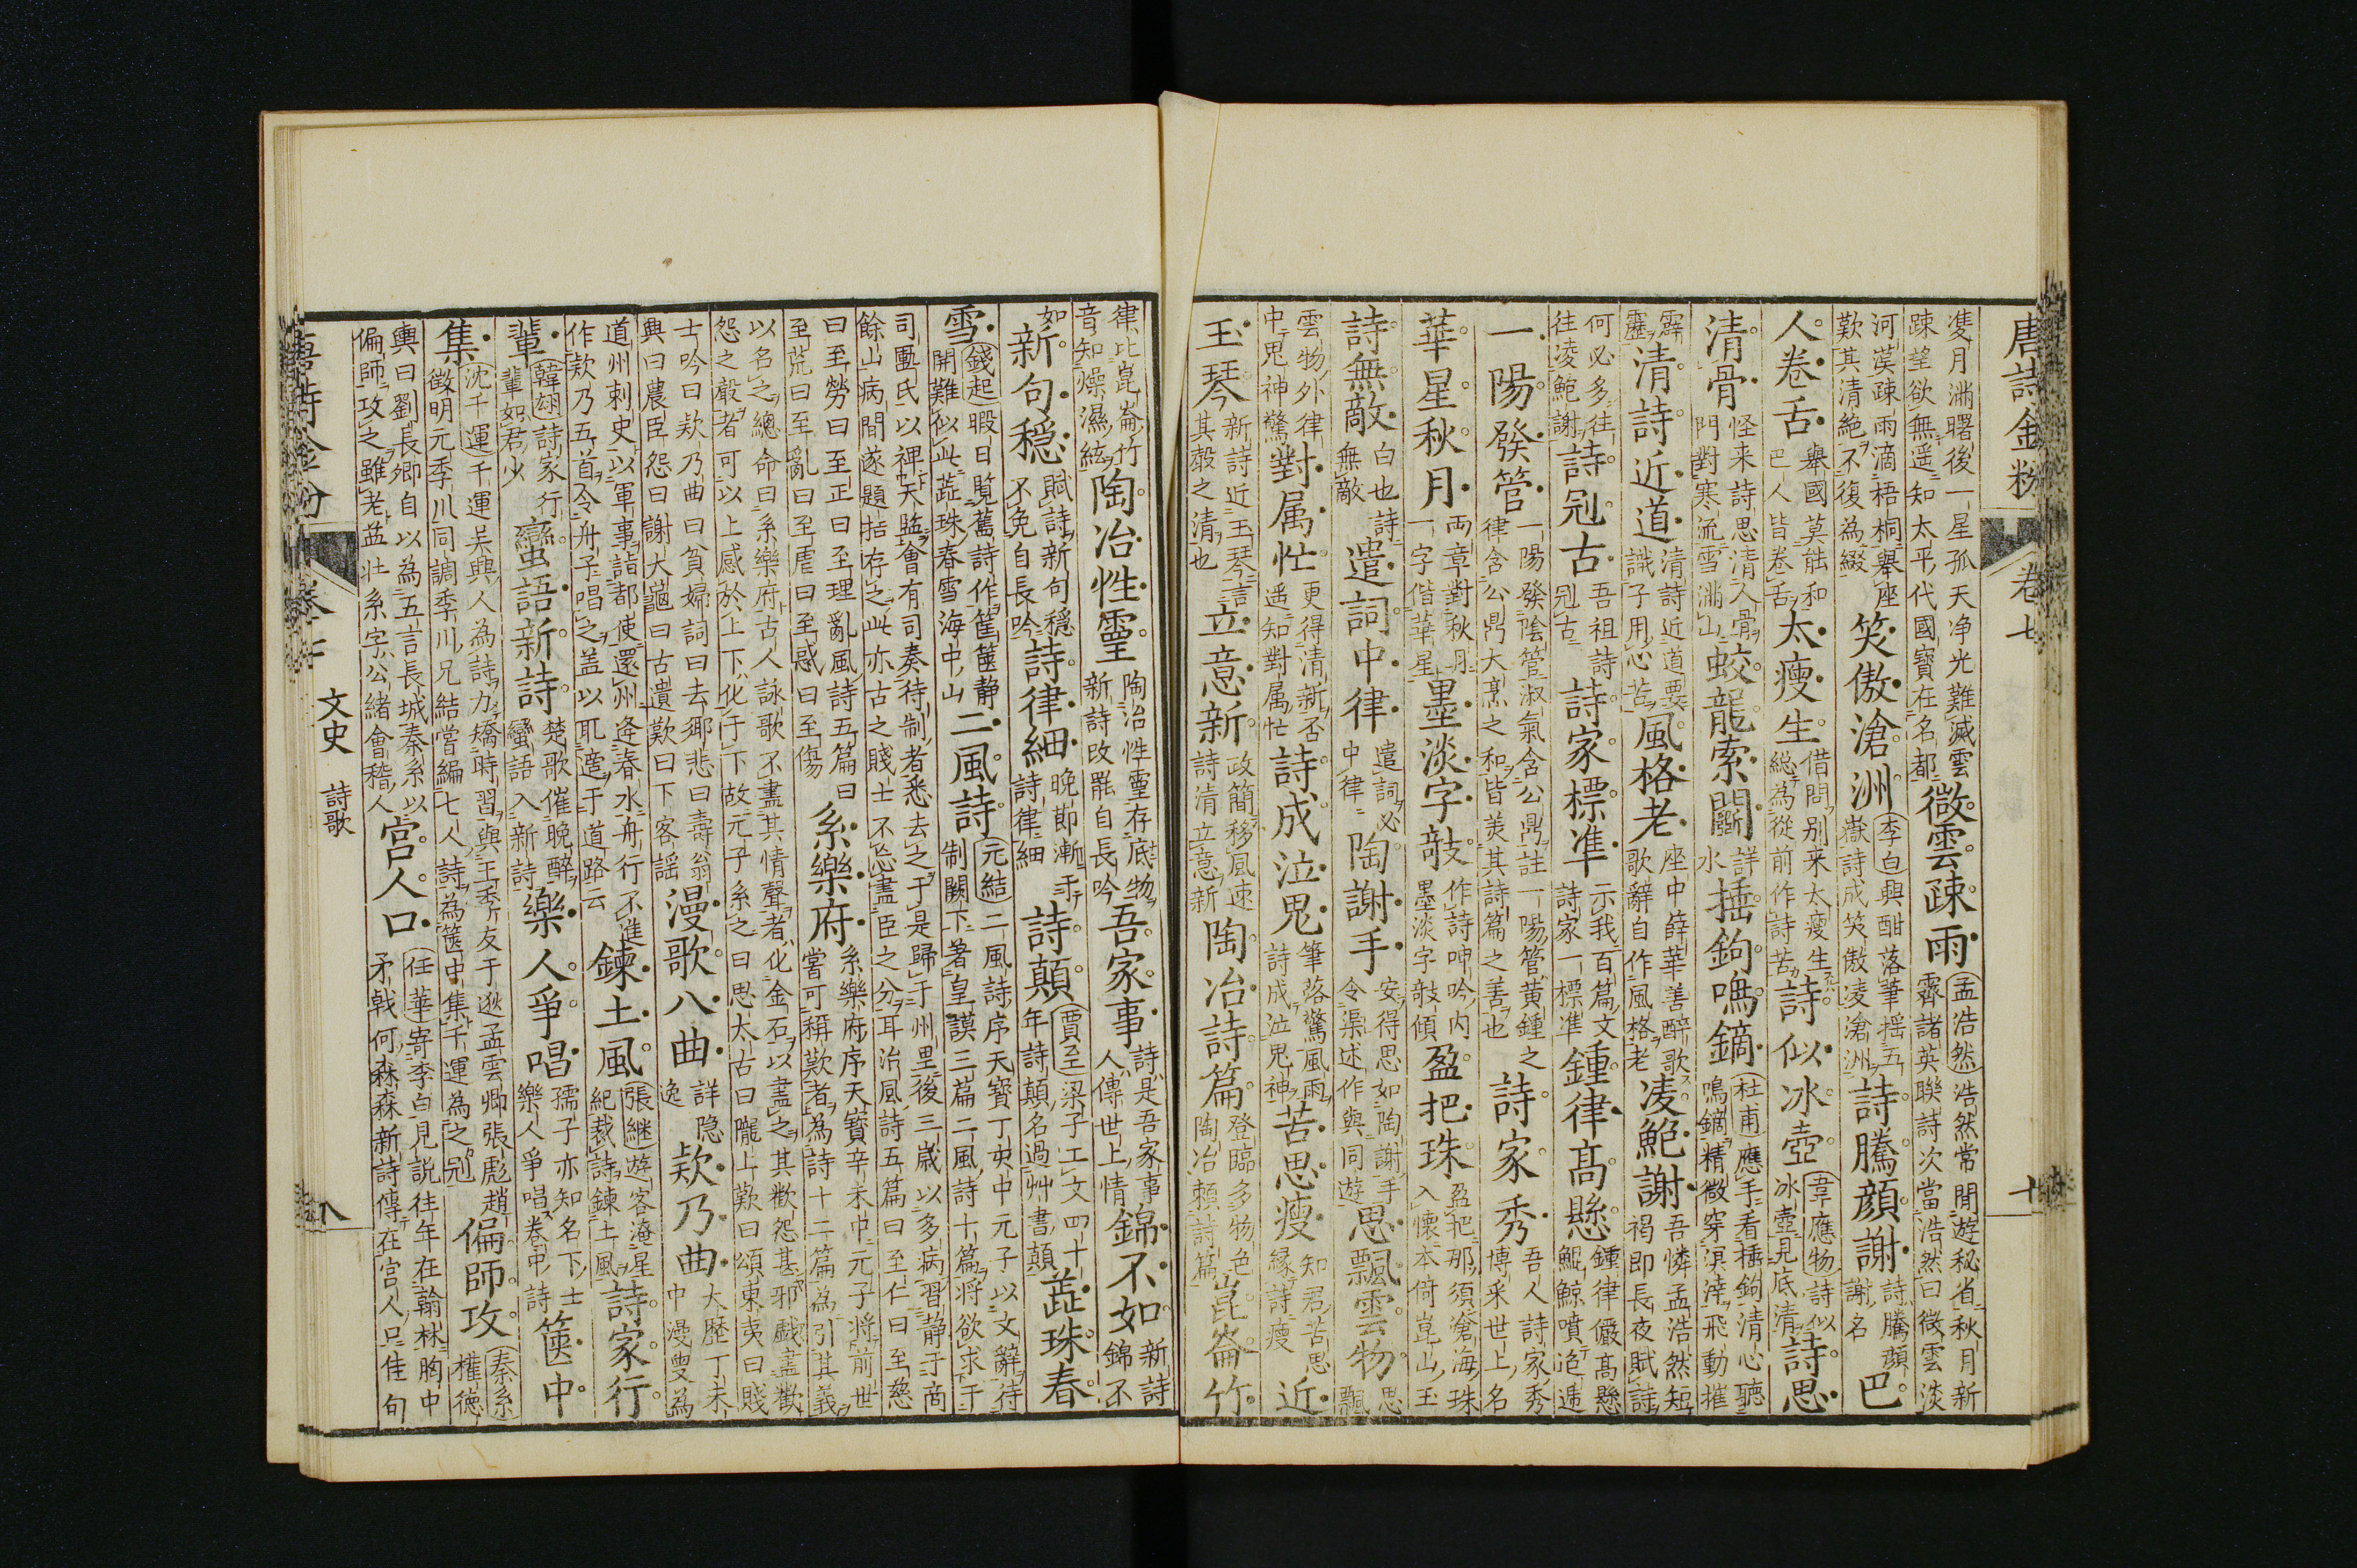 唐詩金粉 卷七 十
㕠月滿曙後一星孤天净光難滅雲
踈望欲無遥知太平代國寶在名都
微雲疎雨
孟浩然 浩然常閒遊秘省秋月新
霽諸英聯詩次當浩然曰微雲淡
河漢疎雨滴梧桐舉座
歎其清絶不復為綴
笑傲滄洲
李白 興酣落筆揺五
嶽詩成笑傲凌滄洲
詩騰顔謝
詩騰顔
謝名
巴
人卷舌
舉國莫能和
巴人皆卷舌
太瘦生
借問别来太瘦生
総為從前作詩苦
詩似冰壺
韋應物 詩似
冰壺見底清
詩思
清骨
怪来詩思清人骨
門對寒流雪滿山
蛟龍索鬭
詳
水
捶鉤鳴鏑
杜甫 應手看捶鉤清心聴
鳴鏑精微穿溟涬飛動摧
霹
靂
清詩近道
清詩近道要
識子用心苦
風格老
座中薛華善醉歌
歌辭自作風格老
凌鮑謝
吾憐孟浩然短
褐即長夜賦詩
何必多往
往凌鮑謝
詩冠古
吾祖詩
冠古
詩家標準
示我百篇文
詩家一標準
鍾律髙懸
鍾律儼髙懸
鯤鯨噴迢遞
一陽發管
一陽發陰管淑氣含公鼎註一陽管黄鍾之
律含公鼎大烹之和皆美其詩篇之善也
詩家秀
吾人詩家秀
博采世上名
華星秋月
两章對秋月
一字偕華星
墨淡字敧
作詩呻吟内
墨淡字敧傾
盈把珠
盈把那須滄海珠
入懷本倚崑山玉
詩無敵
白也詩
無敵
遣詞中律
遣詞必
中律
陶謝手
安得思如陶謝手
令渠述作與同遊
思飄雲物
思
飄
雲物外律
中鬼神驚
對属忙
更得清新否
遥知對属忙
詩成泣鬼
筆落驚風雨
詩成泣鬼神
苦思瘦
知君苦思
縁詩瘦
近
玉琴
新詩近玉琴言
其聲之清也
立意新
政簡移風速
詩清立意新
陶冶詩篇
登臨多物色
陶冶頼詩篇
崑崙竹
律比崑崙竹
音知燥濕絃
陶冶性靈
陶冶性靈存底物
新詩改罷自長吟
吾家事
詩是吾家事
人傳世上情
錦不如
新詩
錦不
如
新句穏
賦詩新句穏
不免自長吟
詩律細
晩節漸于
詩律細
詩顛
賈至 梁子工文四十
年詩顛名過艸書顛
蕋珠春
雪
錢起 暇日覧舊詩作篚篋静
開難似此蕋珠春雪海中山
二風詩
元結 二風詩序天寳丁亥中元子以文辭待
制闕下著皇謨三篇二風詩十篇将欲求于
司匭氏以裨天監會有司奏待制者悉去之于是歸于州里後三歳以多病習静于商
餘山病間遂題括存之此亦古之賤士不忘盡臣之分耳治風詩五篇曰至仁曰至慈
曰至勞曰至正曰至理亂風詩五篇曰
至荒曰至亂曰至虐曰至惑曰至傷
系樂府
系樂府序天寳辛未中元子将前世
嘗可稱歎者為詩十二篇為引其義
以名之總命曰系樂府古人詠歌不盡其情聲者化金石以盡之其歡怨甚邪戯盡歡
怨之聲者可以上感於上下化于下故元子系之曰思太古曰隴上歎曰頌東夷曰賤
士吟曰欵乃曲曰貧婦詞曰去鄉悲曰壽翁
興曰農臣怨曰謝大龜曰古遺歎曰下客謡
漫歌八曲
詳隐
逸
欵乃曲
大歴丁未
中漫叟為
道州刺史以軍事詣都使還州逄春水舟行不進
作欵乃五首令舟子唱之盖以耴適于道路云
鍊土風
張継 遊客淹星
紀裁詩鍊土風
詩家行
輩
韓翃 詩家行
輩如君少
蠻語新詩
楚歌催晩醉
蠻語入新詩
樂人爭唱
孺子亦知名下士
樂人爭唱巻中詩
篋中
集
沈千運 千運吳興人為詩力矯時習與王季友于逖孟雲卿張彪趙
徴明元季川同調季川兄結嘗編七人詩為篋中集千運為之冠
偏師攻
秦系
權德
輿曰劉長卿自以為五言長城秦系以
偏師攻之雖老益壮系字公緒會稽人
宫人口
任華 寄李白見説往年在翰林胸中
矛戟何森森新詩傳在宫人口佳句
唐詩金粉 卷七 文史 詩歌 八